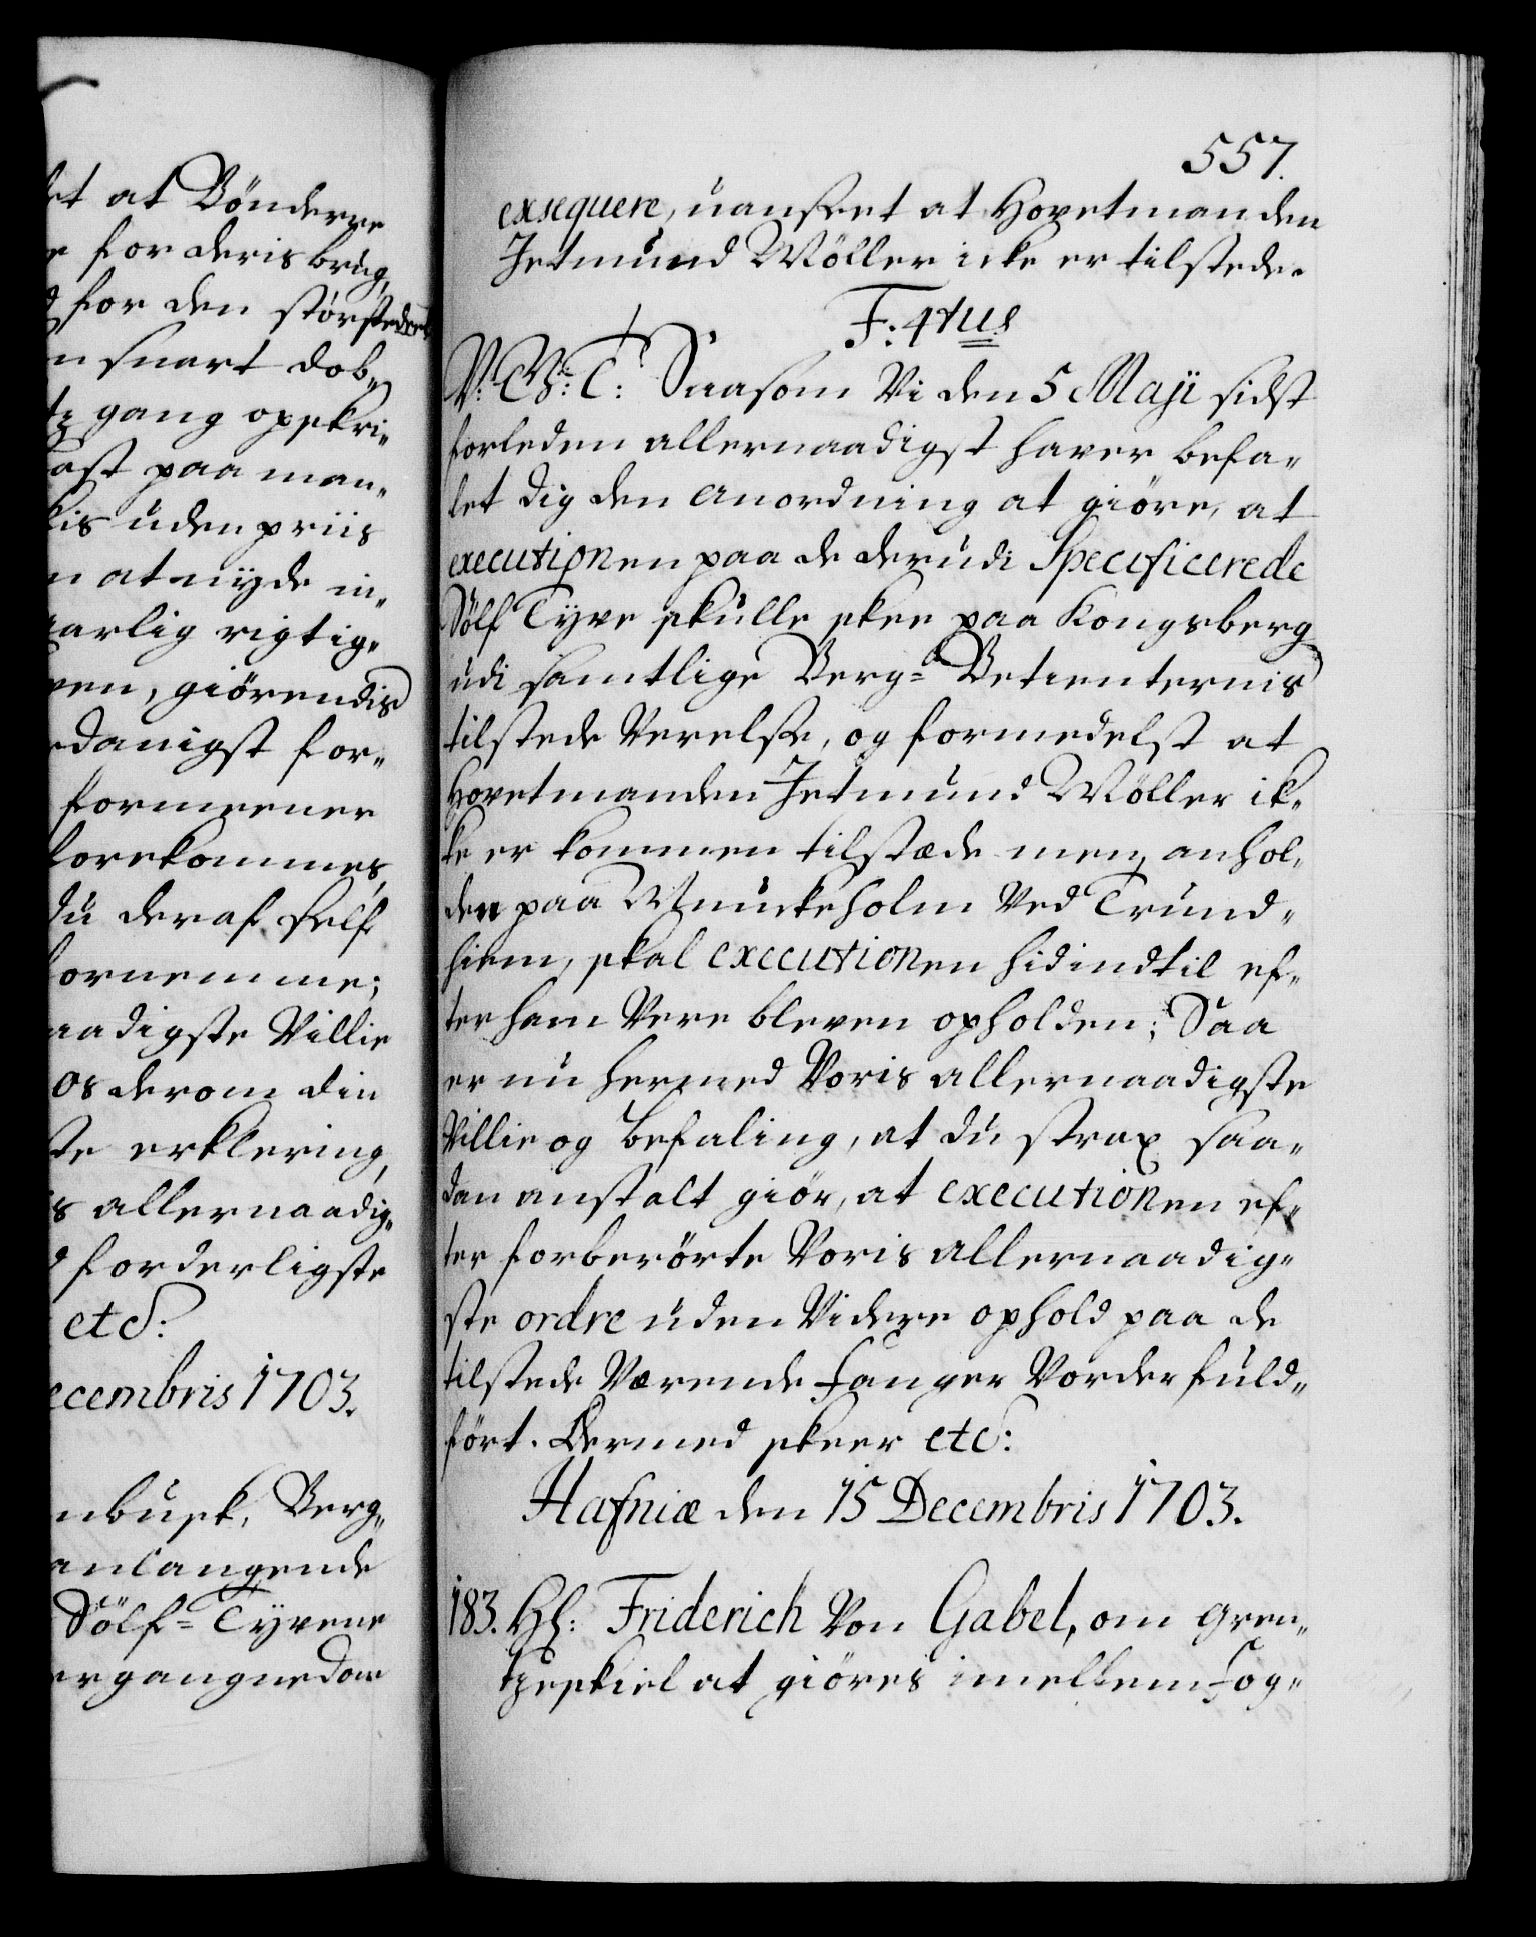 et at Bönderne
e for deris brug,
d for den størstedeel
n snart dob„
tz gang opskri„
ast paa man„
kis uden priis
n at nyde in„
aarlig rigtig„
ven, giörendis
rdanigst for„
formeener
forekommes,
du deraf self
fornemme;
aadigste Villie
Os derom din
ste erklering,
s allernaadig„
d forderligste
etc:
ecembris 1703.
nbusk, Berg„
anlangende
Sölf- Tyvene
ergangne dom
557.
exsequere, uanseet at Hovetmanden
Jetmund Möller icke er tilstede.
F: 4tus
V. G: T: Saasom Vi den 5 Maji sidst
forleden allernaadigst haver befa„
let dig den anordning at giöre, at
executionen paa de derudi Specificerede
Sölf Tyve skulle skee paa Kongsberg
udi samtlige Berg- Betienternis
tilstede Verelse, og formedelst at
Hovetmanden Jetmund Möller ik„
ke er kommen tilstæde men anhol„
den paa Munckeholm Ved Trund„
hiem, skal executionen hidindtil ef„
ter ham Vere bleven opholden; Saa
er nu hermed Voris allernaadigste
Villie og befaling, at du strax saa„
dan anstalt giör, at executionen ef„
ter forberörte Voris allernaadig„
ste ordre uden Videre ophold paa de
tilstede Værende Fanger Vorder fuld„
fört. Dermed skeer etc:
Hafniæ den 15 Decembris 1703.
183. Hr: Friderich Von Gabel, om Gren„
tzeskiel at giöres imellem Fog„